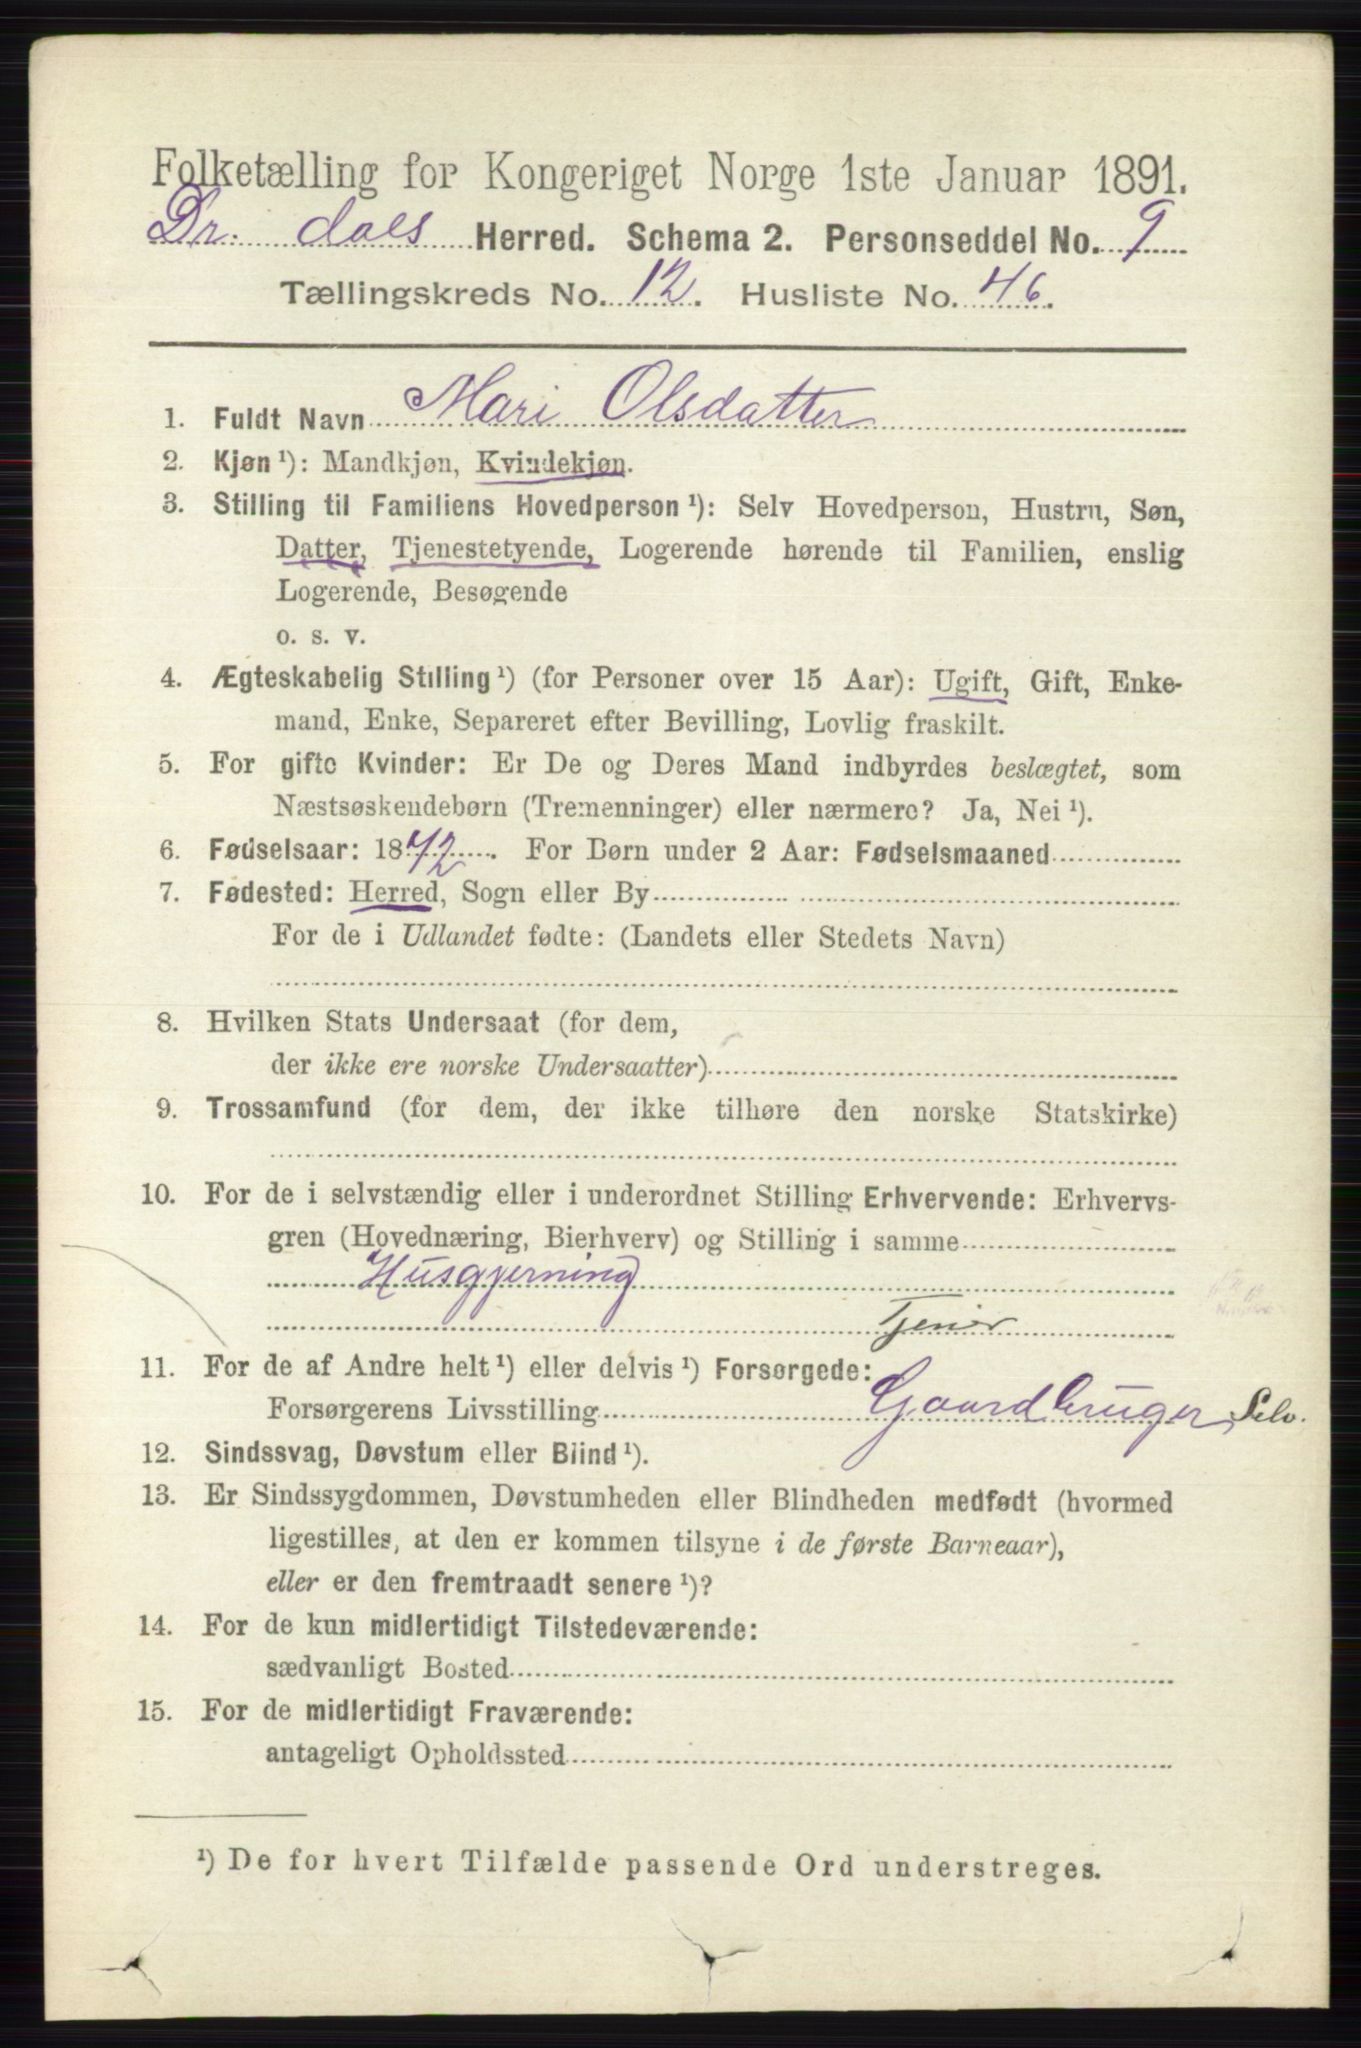 Folketælling for Kongeriget Norge 1ste Januar 1891.
Dr. dals Herred. Schema 2. Personseddel No. 9
Tællingskreds No. 12. Husliste No. 46.
1. Fuldt Navn Mari Olsdatter
2. Kjøn ¹): Mandkjøn, Kvindekjøn.
3. Stilling til Familiens Hovedperson ¹): Selv Hovedperson, Hustru, Søn,
Datter, Tjenestetyende, Logerende hørende til Familien, enslig
Logerende, Besøgende
o. s. v.
4. Ægteskabelig Stilling ¹) (for Personer over 15 Aar): Ugift, Gift, Enke-
mand, Enke, Separeret efter Bevilling, Lovlig fraskilt.
5. For gifte Kvinder: Er De og Deres Mand indbyrdes beslægtet, som
Næstsøskendebørn (Tremenninger) eller nærmere? Ja, Nei ¹).
6. Fødselsaar: 1872. For Børn under 2 Aar: Fødselsmaaned
7. Fødested: Herred, Sogn eller By
For de i Udlandet fødte: (Landets eller Stedets Navn)
8. Hvilken Stats Undersaat (for dem,
der ikke ere norske Undersaatter)
9. Trossamfund (for dem, der ikke tilhøre den norske Statskirke)
10. For de i selvstændig eller i underordnet Stilling Erhvervende: Erhvervs-
gren (Hovednæring, Bierhverv) og Stilling i samme
Husgjerning
Tjener
11. For de af Andre helt ¹) eller delvis ¹) Forsørgede:
Forsørgerens Livsstilling Gaardbruger Selv.
12. Sindssvag, Døvstum eller Blind ¹).
13. Er Sindssygdommen, Døvstumheden eller Blindheden medfødt (hvormed
ligestilles, at den er kommen tilsyne i de første Barneaar),
eller er den fremtraadt senere ¹)?
14. For de kun midlertidigt Tilstedeværende:
sædvanligt Bosted
15. For de midlertidigt Fraværende:
antageligt Opholdssted
¹) De for hvert Tilfælde passende Ord understreges.